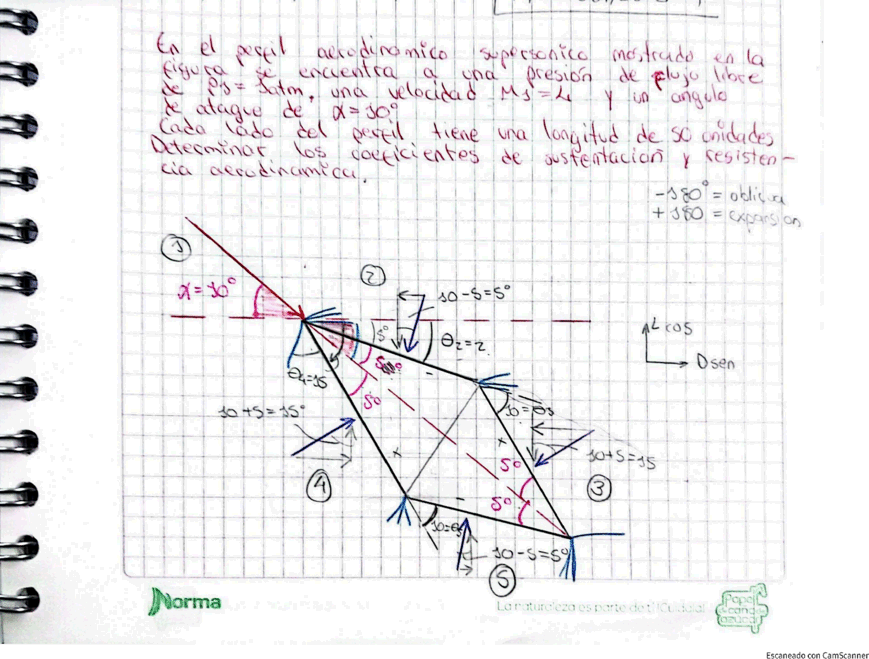 En el perfil aerodinamico supersonico mostrado en la
figura se encuentra a una presión de flujo libre
de P1=1atm, una velocidad M1=4 y un angulo
de ataque de α=10°
Cada lado del perfil tiene una longitud de 50 unidades
Determinar los coeficientes de sustentación y resisten-
cia aerodinamica.
-180° = oblicua
+180 = expansión
1
2
α=10°
10-5=5°
5°
θ2=2
L cos
D sen
5°
θ4=15
5°
10=θ3
10+5=15°
10+5=15
5°
4
3
5°
10=θ5
10-5=5°
5
Norma
La naturaleza es parte de ti ¡Cuídala!
Papel
caña
azúcar
Escaneado con CamScanner